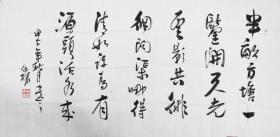 半畝方塘一
鑒開天光
雲影共徘
徊问渠哪得
清如許為有
源頭活水來
甲午年秋月